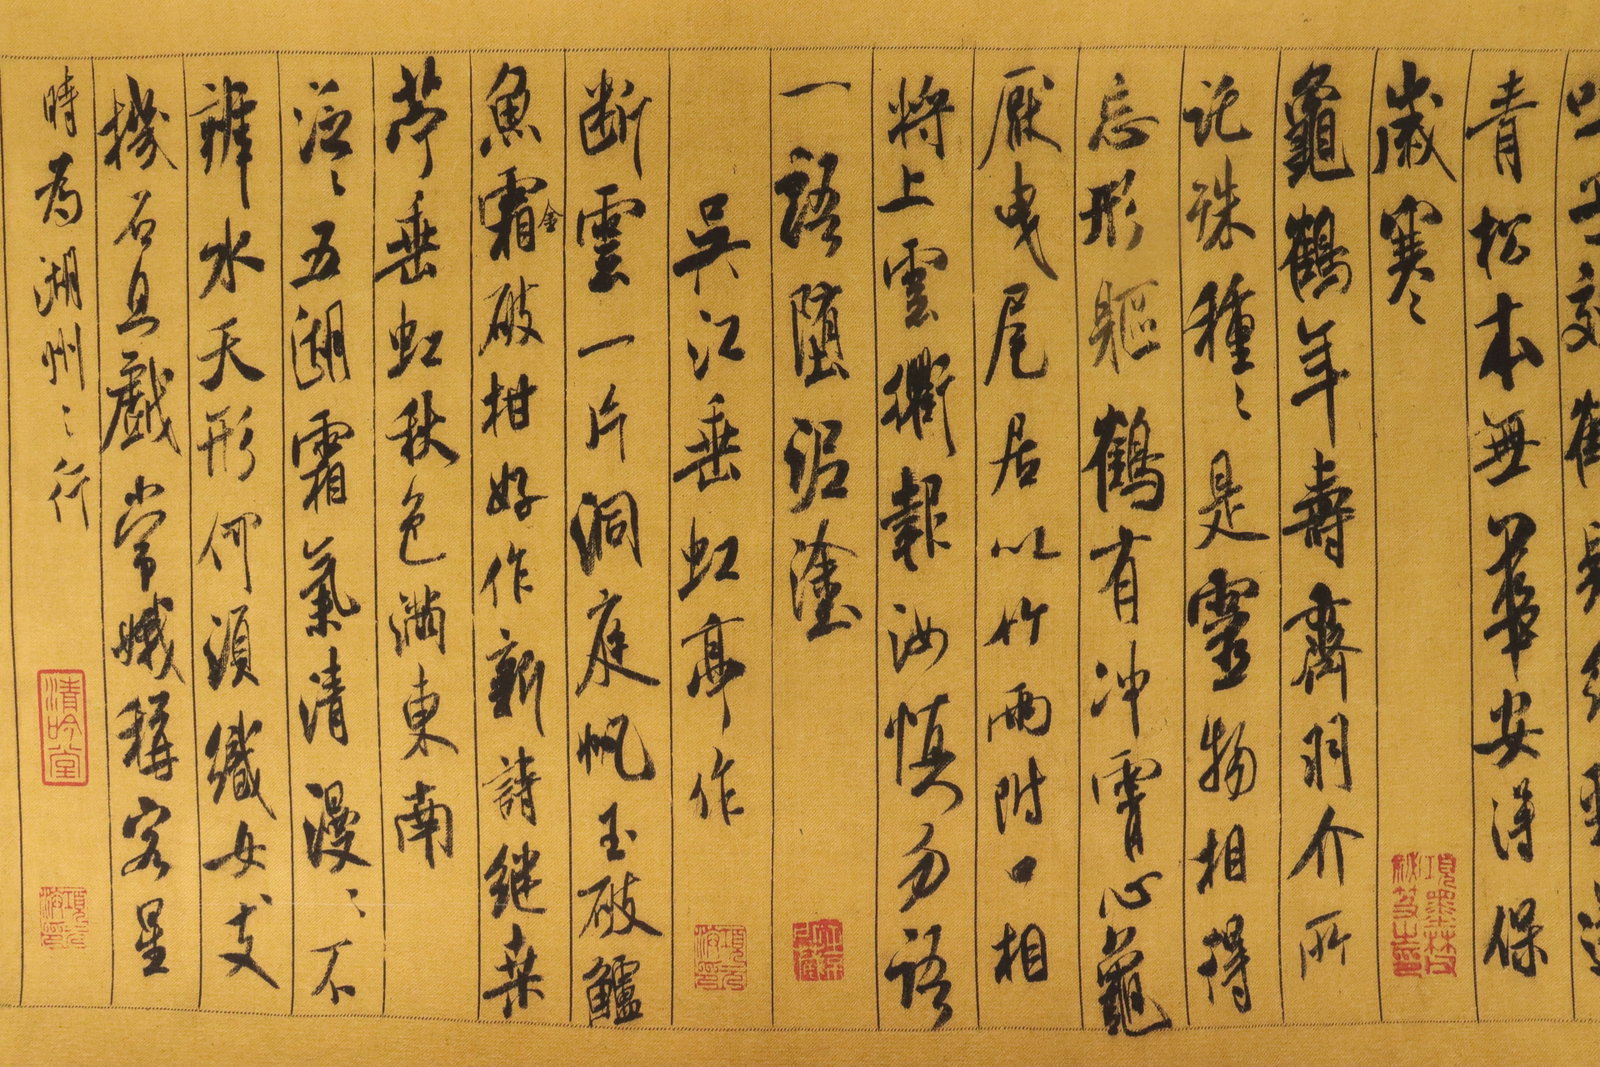 青松本無華安得保
歲寒
龜鶴年壽齊羽介所
託殊種〻是靈物相得
忘形軀鶴有冲霄心龜
厭曳尾居以竹兩附口相
將上雲衢報汝慎勿語
一語墮泥塗
吳江垂虹亭作
斷雲一片洞庭帆玉破鱸
魚霜金破柑好作新詩繼桑
苧垂虹秋色滿東南
泛〻五湖霜氣清漫〻不
辨水天形何須織女支
機石且戲常娥稱客星
時為湖州之行
項墨林父祕笈之印
項元汴印
清吟堂
項元汴印